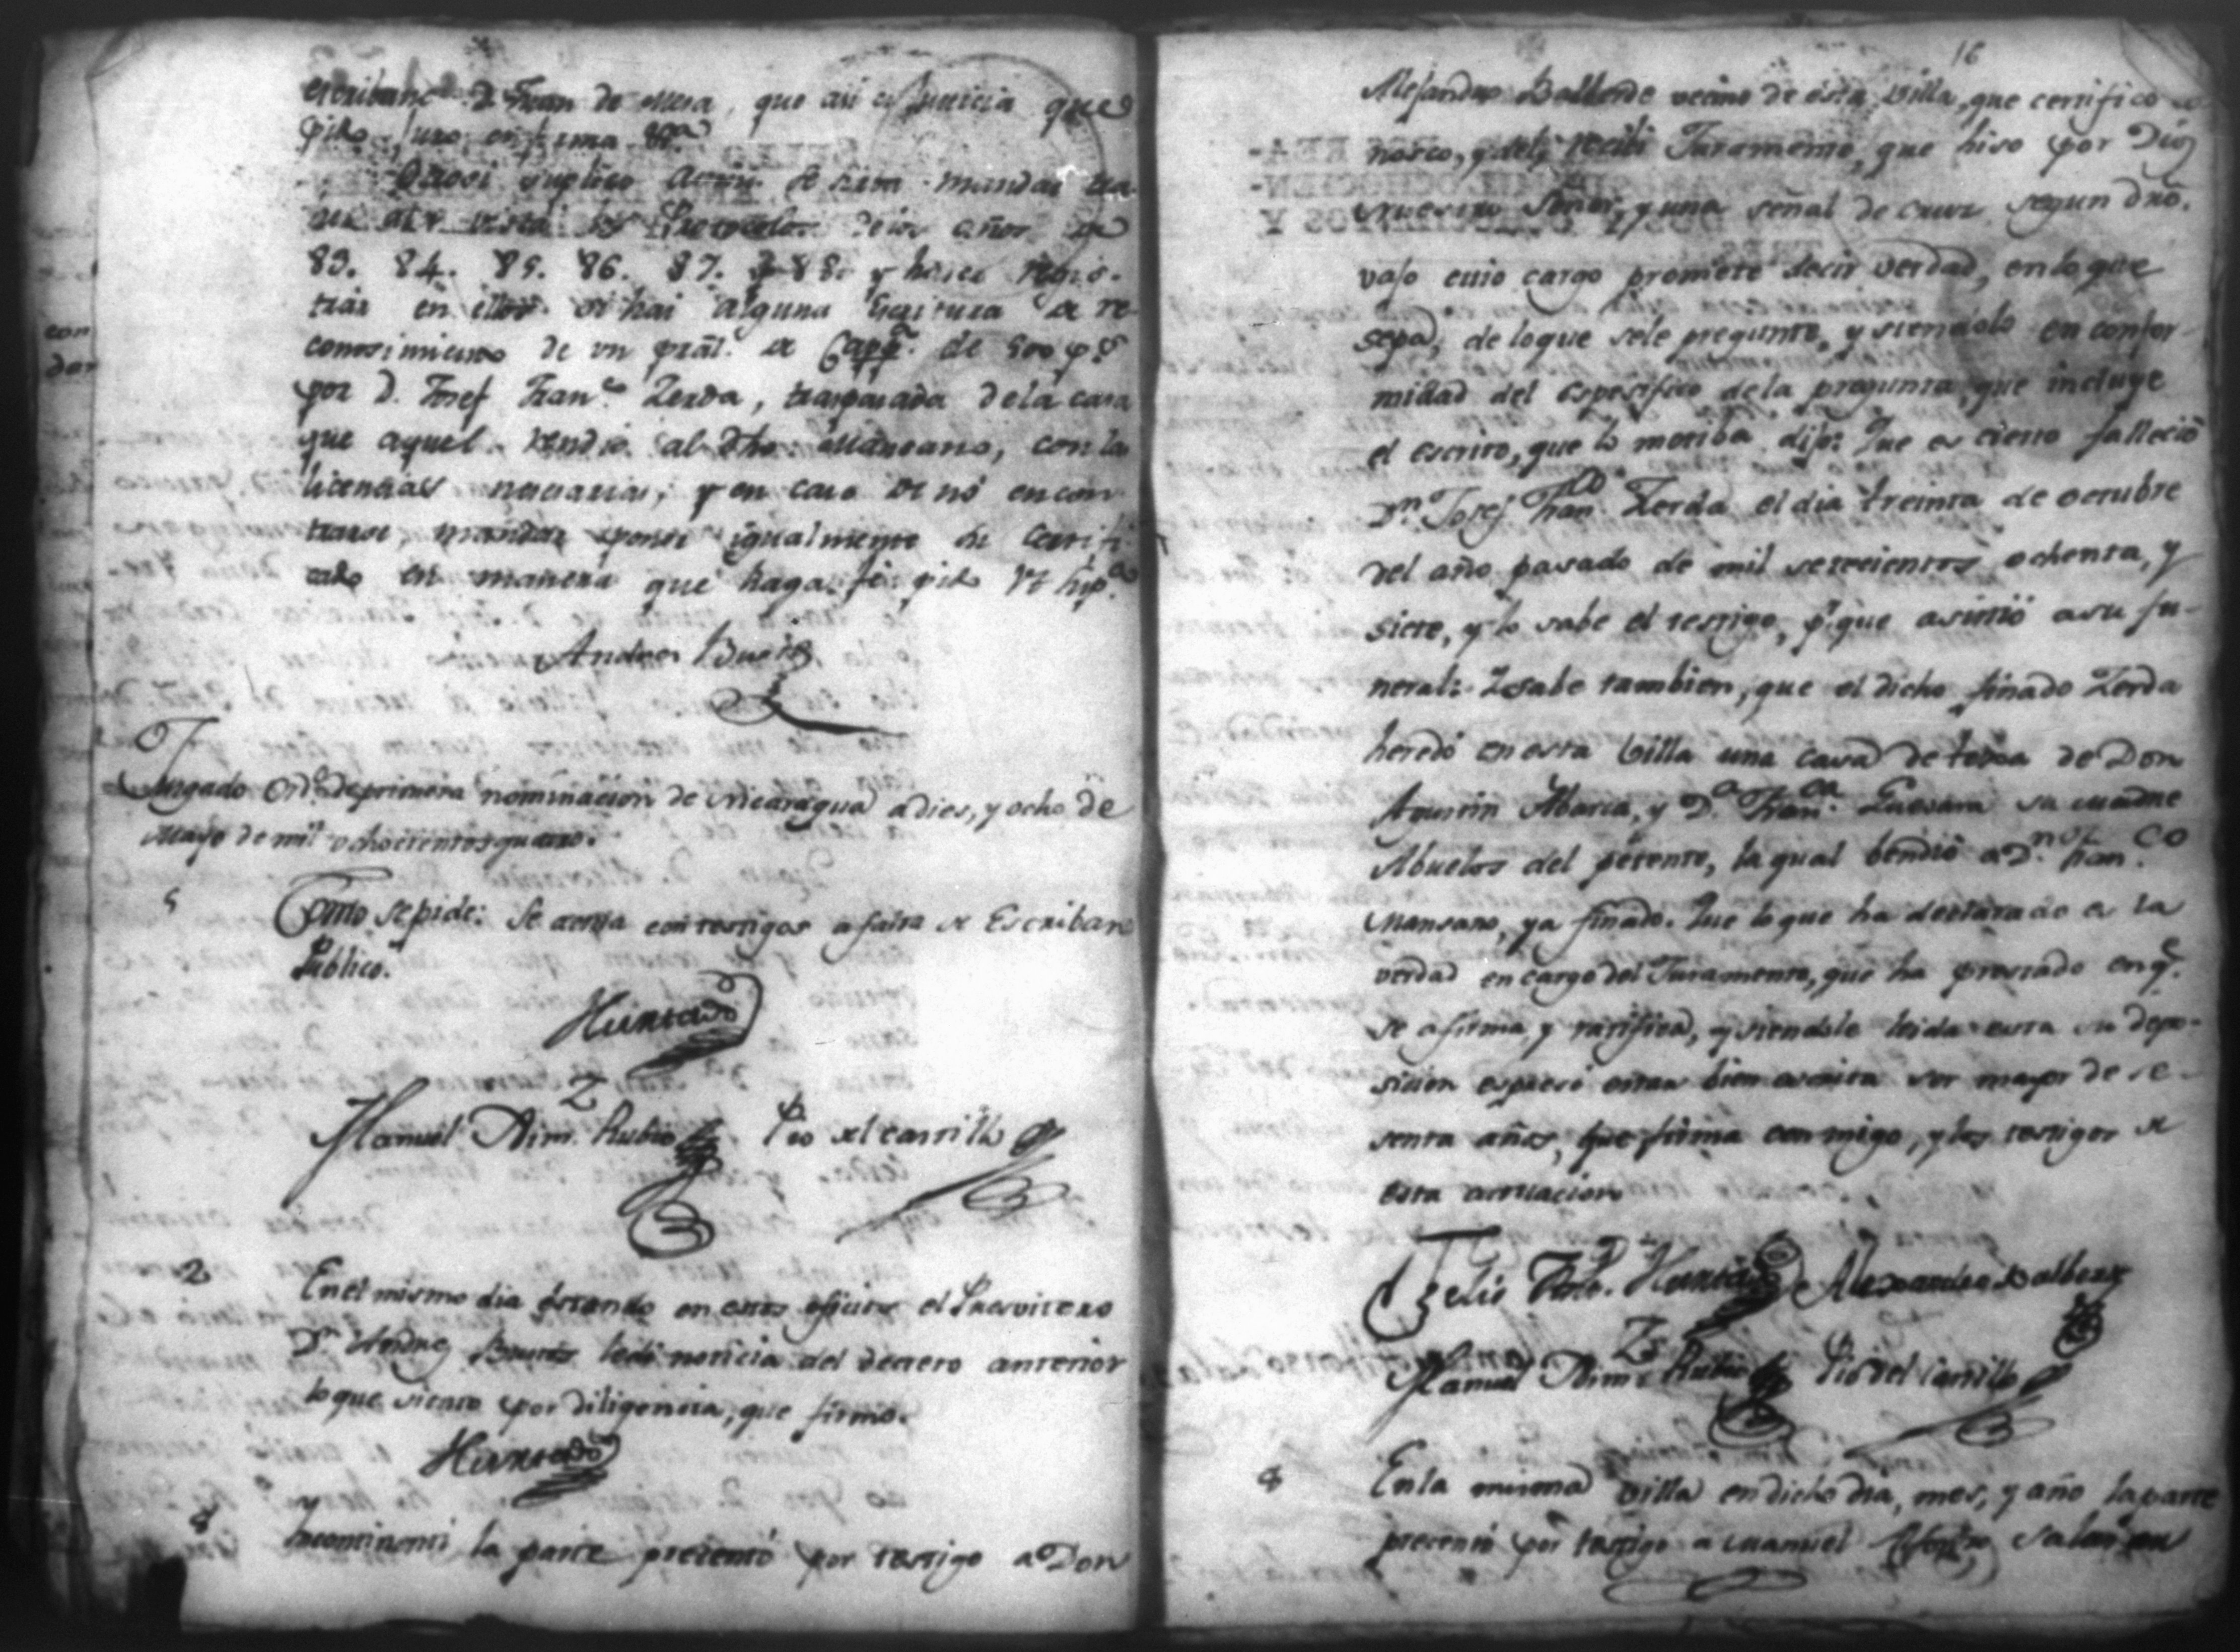 escribano D. Fran de Mesa, que asi es Justicia que
pido, Juro en forma &c.ª
Otrosi suplico se sirva mandar tra-
er a la vista los Protocolos de los años de
83. 84. 85. 86. 87. y 88. y hacer regis-
trar en ellos si hai alguna Escritura de re-
conosimiento de un pral. de Capp.ª de 500 p.s
por D. Josef Fran.co Zerda, traspasada de la casa
que aquel vendio al dho. Mansano, con las
licencias nesesarias, y en caso de no encon-
trarse, mandar poner igualmente de certifi-
cado en manera que haga fe pido Vt supª
Andres
Jusgado Ord.º de primera nominacion de Nicaragua a dies, y ocho de
Mayo de mil ochocientos quatro.
Como se pide: Se actua con testigos a falta de Escribano
Publico.
Hurtado
Manuel Anim. Rubio Pio del Carrillo
2 En el mismo dia estando en estos oficios el Presvitero
Dn. Andres le di noticia del decreto anterior
lo que siento por diligencia, que firmo.
Hurtado
Yncontinenti la parte presentó por testigo a Don
16
Alejandro Balberde vecino de esta Villa, que certifico co-
nosco, y de el recibi Juramento, que hiso por Dios
nuestro Señor, y una señal de cruz segun dro.
vajo cuio cargo promete decir verdad, en lo que
sepa, de lo que se le pregunte, y siendolo en confor-
midad del espesifico de la pregunta, que incluye
el escrito, que lo motiba dijo: Que es cierto fallecio
Dn. Josef Fran.co Zerda el dia treinta de octubre
del año pasado de mil setecientos ochenta, y
siete, y lo sabe el testigo, p.r que asistió a su fu-
neral: Y sabe tambien, que el dicho finado Zerda
heredó en esta Villa una casa de texa de Don
Agustin Abarca, y D.ª Fran.ca Guevara su madre
Abuelos del , la qual bendió a Dn. Fran.co
Mansano, ya finado. Que lo que ha declarado es la
verdad en cargo del Juramento, que ha prestado en q.e
se afirma, y ratifica, y siendole leida esta su depo-
sicion espuso estar bien escrita ser mayor de se-
senta años, que firma conmigo, y los testigos de
esta actuacion
Felis Hurtado Alexandro Balberde
Manuel Anim. Rubio Pio del Carrillo
En la misma Villa en dicho dia, mes, y año la parte
presentó por testigo a Manuel Salas